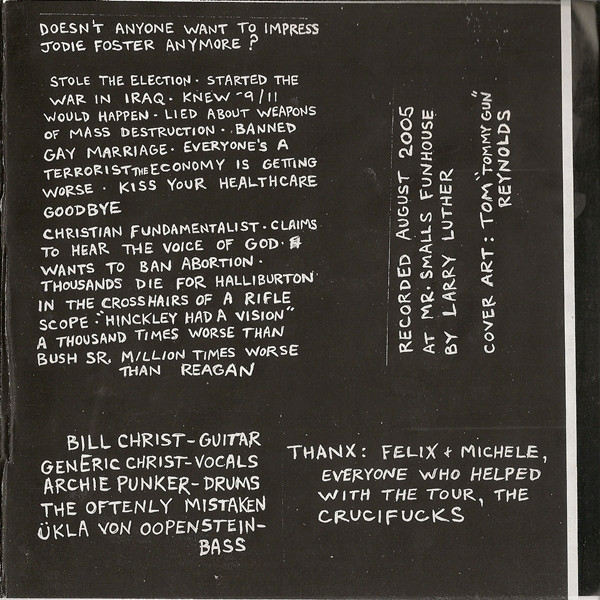 DOESN'T ANYONE WANT TO IMPRESS
JODIE FOSTER ANYMORE?
STOLE THE ELECTION · STARTED THE
WAR IN IRAQ · KNEW 9/11
WOULD HAPPEN · LIED ABOUT WEAPONS
OF MASS DESTRUCTION · BANNED
GAY MARRIAGE · EVERYONE'S A
TERRORIST THE ECONOMY IS GETTING
WORSE · KISS YOUR HEALTHCARE
GOODBYE
CHRISTIAN FUNDAMENTALIST · CLAIMS
TO HEAR THE VOICE OF GOD ·
WANTS TO BAN ABORTION ·
THOUSANDS DIE FOR HALLIBURTON
IN THE CROSSHAIRS OF A RIFLE
SCOPE · "HINCKLEY HAD A VISION"
A THOUSAND TIMES WORSE THAN
BUSH SR. MILLION TIMES WORSE
THAN REAGAN
RECORDED AUGUST 2005
AT MR. SMALLS FUNHOUSE
BY LARRY LUTHER
COVER ART: TOM "TOMMY GUN"
REYNOLDS
BILL CHRIST - GUITAR
GENERIC CHRIST - VOCALS
ARCHIE PUNKER - DRUMS
THE OFTENLY MISTAKEN
ÜKLA VON OOPENSTEIN-
BASS
THANX: FELIX + MICHELE,
EVERYONE WHO HELPED
WITH THE TOUR, THE
CRUCIFUCKS